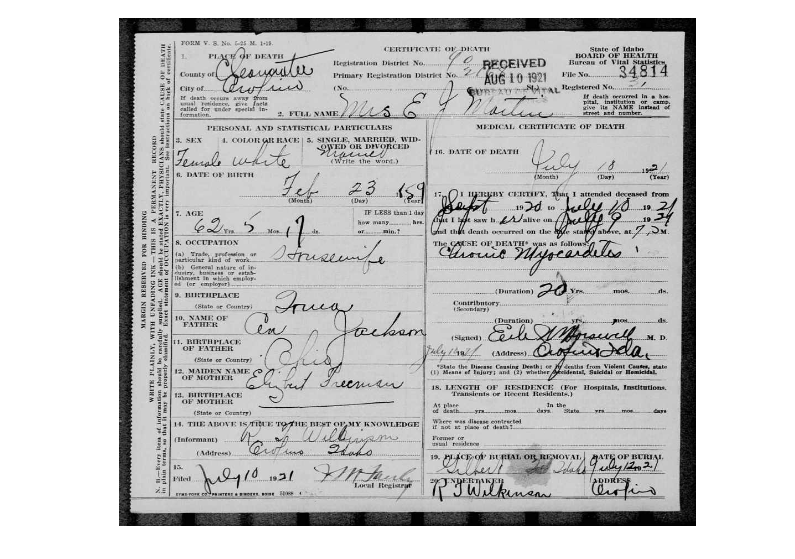 FORM V. S. No. 5-25 M. 1-15.
CERTIFICATE OF DEATH
State of Idaho
BOARD OF HEALTH
Bureau of Vital Statistics
1. PLACE OF DEATH
County of Clearwater
City of Orofino
If death occurs away from usual residence, give facts called for under special information.
Registration District No. 90
Primary Registration District No.
(No. St.)
RECEIVED
AUG 10 1921
BUREAU OF VITAL
File No. 34814
Registered No.
If death occurred in a hospital, institution or camp, give its NAME instead of street and number.
2. FULL NAME Mrs E J Martin
PERSONAL AND STATISTICAL PARTICULARS
3. SEX
Female
4. COLOR OR RACE
White
5. SINGLE, MARRIED, WIDOWED OR DIVORCED
Married
(Write the word.)
6. DATE OF BIRTH
Feb 23 159
(Month) (Day) (Year)
7. AGE
62 Yrs. 5 Mos. 17 ds.
IF LESS than 1 day how many hrs. or min.?
8. OCCUPATION
(a) Trade, profession or particular kind of work
Housewife
(b) General nature of industry, business or establishment in which employed (or employer)
9. BIRTHPLACE
(State or Country)
Iowa
10. NAME OF FATHER
Jackson
11. BIRTHPLACE OF FATHER
(State or Country)
Ohio
12. MAIDEN NAME OF MOTHER
Elizabeth Freeman
13. BIRTHPLACE OF MOTHER
(State or Country)
14. THE ABOVE IS TRUE TO THE BEST OF MY KNOWLEDGE
(Informant) R F Wilkinson
(Address) Orofino Idaho
15.
Filed July 10 1921
Local Registrar
SYMS-YORK CO., PRINTERS & BINDERS, BOISE
MEDICAL CERTIFICATE OF DEATH
16. DATE OF DEATH
July 10 1921
(Month) (Day) (Year)
17. I HEREBY CERTIFY, That I attended deceased from
Sept 1920 to July 10 1921
that I last saw her alive on July 9 1921
and that death occurred on the date stated above, at M.
The CAUSE OF DEATH* was as follows:
Chronic Myocardites
(Duration) 20 Yrs. mos. ds.
Contributory
(Secondary)
(Duration) yrs. mos. ds.
(Signed) M. D.
(Address) Orofino Ida.
*State the Disease Causing Death; or in deaths from Violent Causes, state (1) Means of Injury; and (2) whether Accidental, Suicidal or Homicidal.
18. LENGTH OF RESIDENCE (For Hospitals, Institutions, Transients or Recent Residents.)
At place of death yrs. mos. days In the State yrs. mos. days
Where was disease contracted if not at place of death?
Former or usual residence
19. PLACE OF BURIAL OR REMOVAL
Gilbert Idaho
DATE OF BURIAL
July 12 1921
20. UNDERTAKER
R F Wilkinson
ADDRESS
Orofino
MARGIN RESERVED FOR BINDING
WRITE PLAINLY, WITH UNFADING INK—THIS IS A PERMANENT RECORD